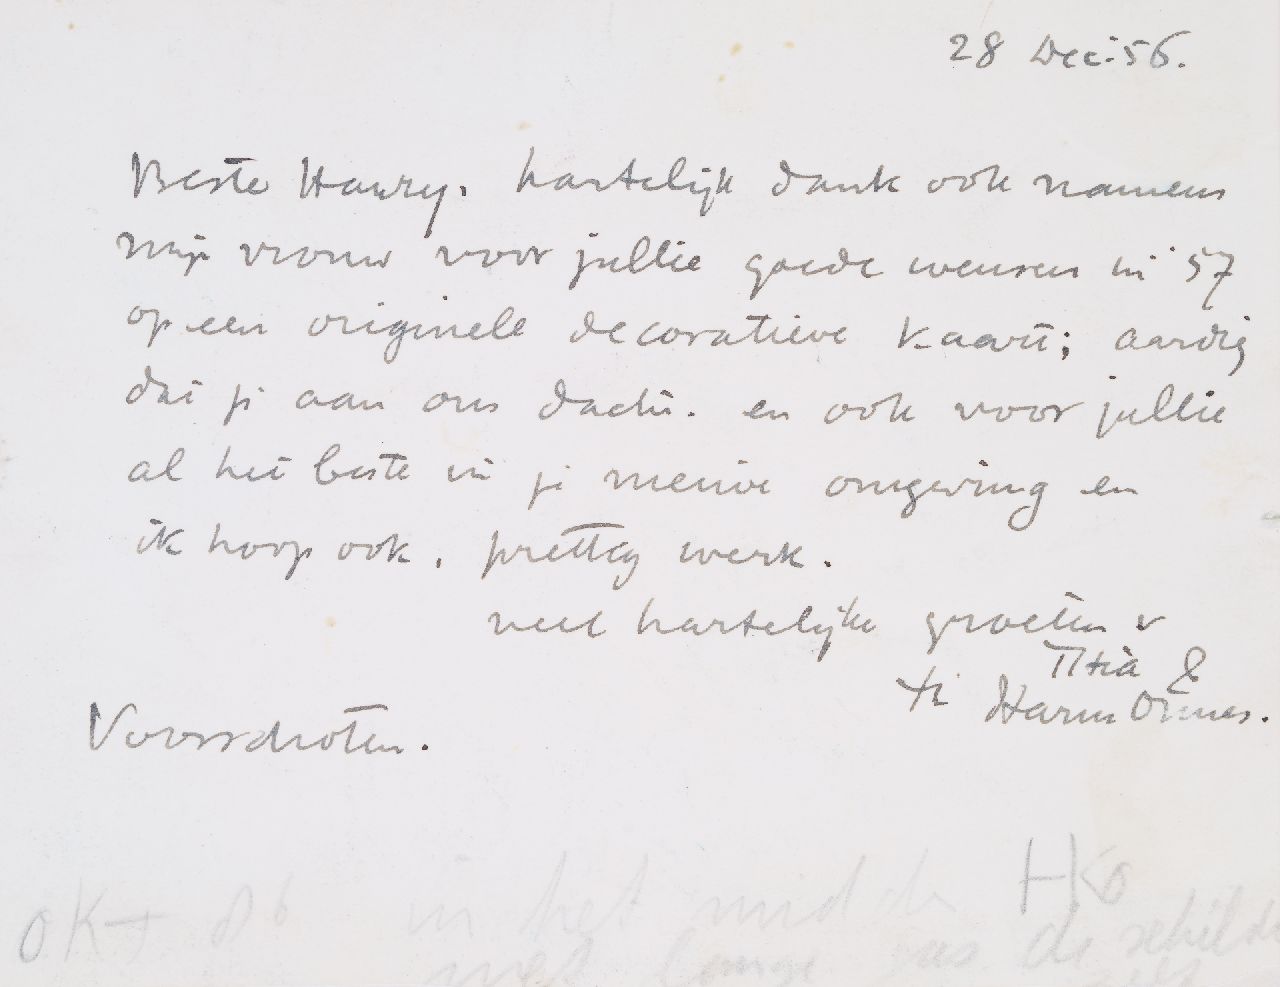 28 Dec. 56.
Beste Hanry, hartelijk dank ook namens
mijn vrouw voor jullie goede wensen in '57
op een originele decoratieve kaart; aardig
dat je aan ons dacht. en ook voor jullie
al het beste in je nieuwe omgeving en
ik hoop ook, prettig werk.
veel hartelijke groeten v
Titia &
Harm
Voorschoten.
OKT 86 in het midden HKO
met lange as de schilder